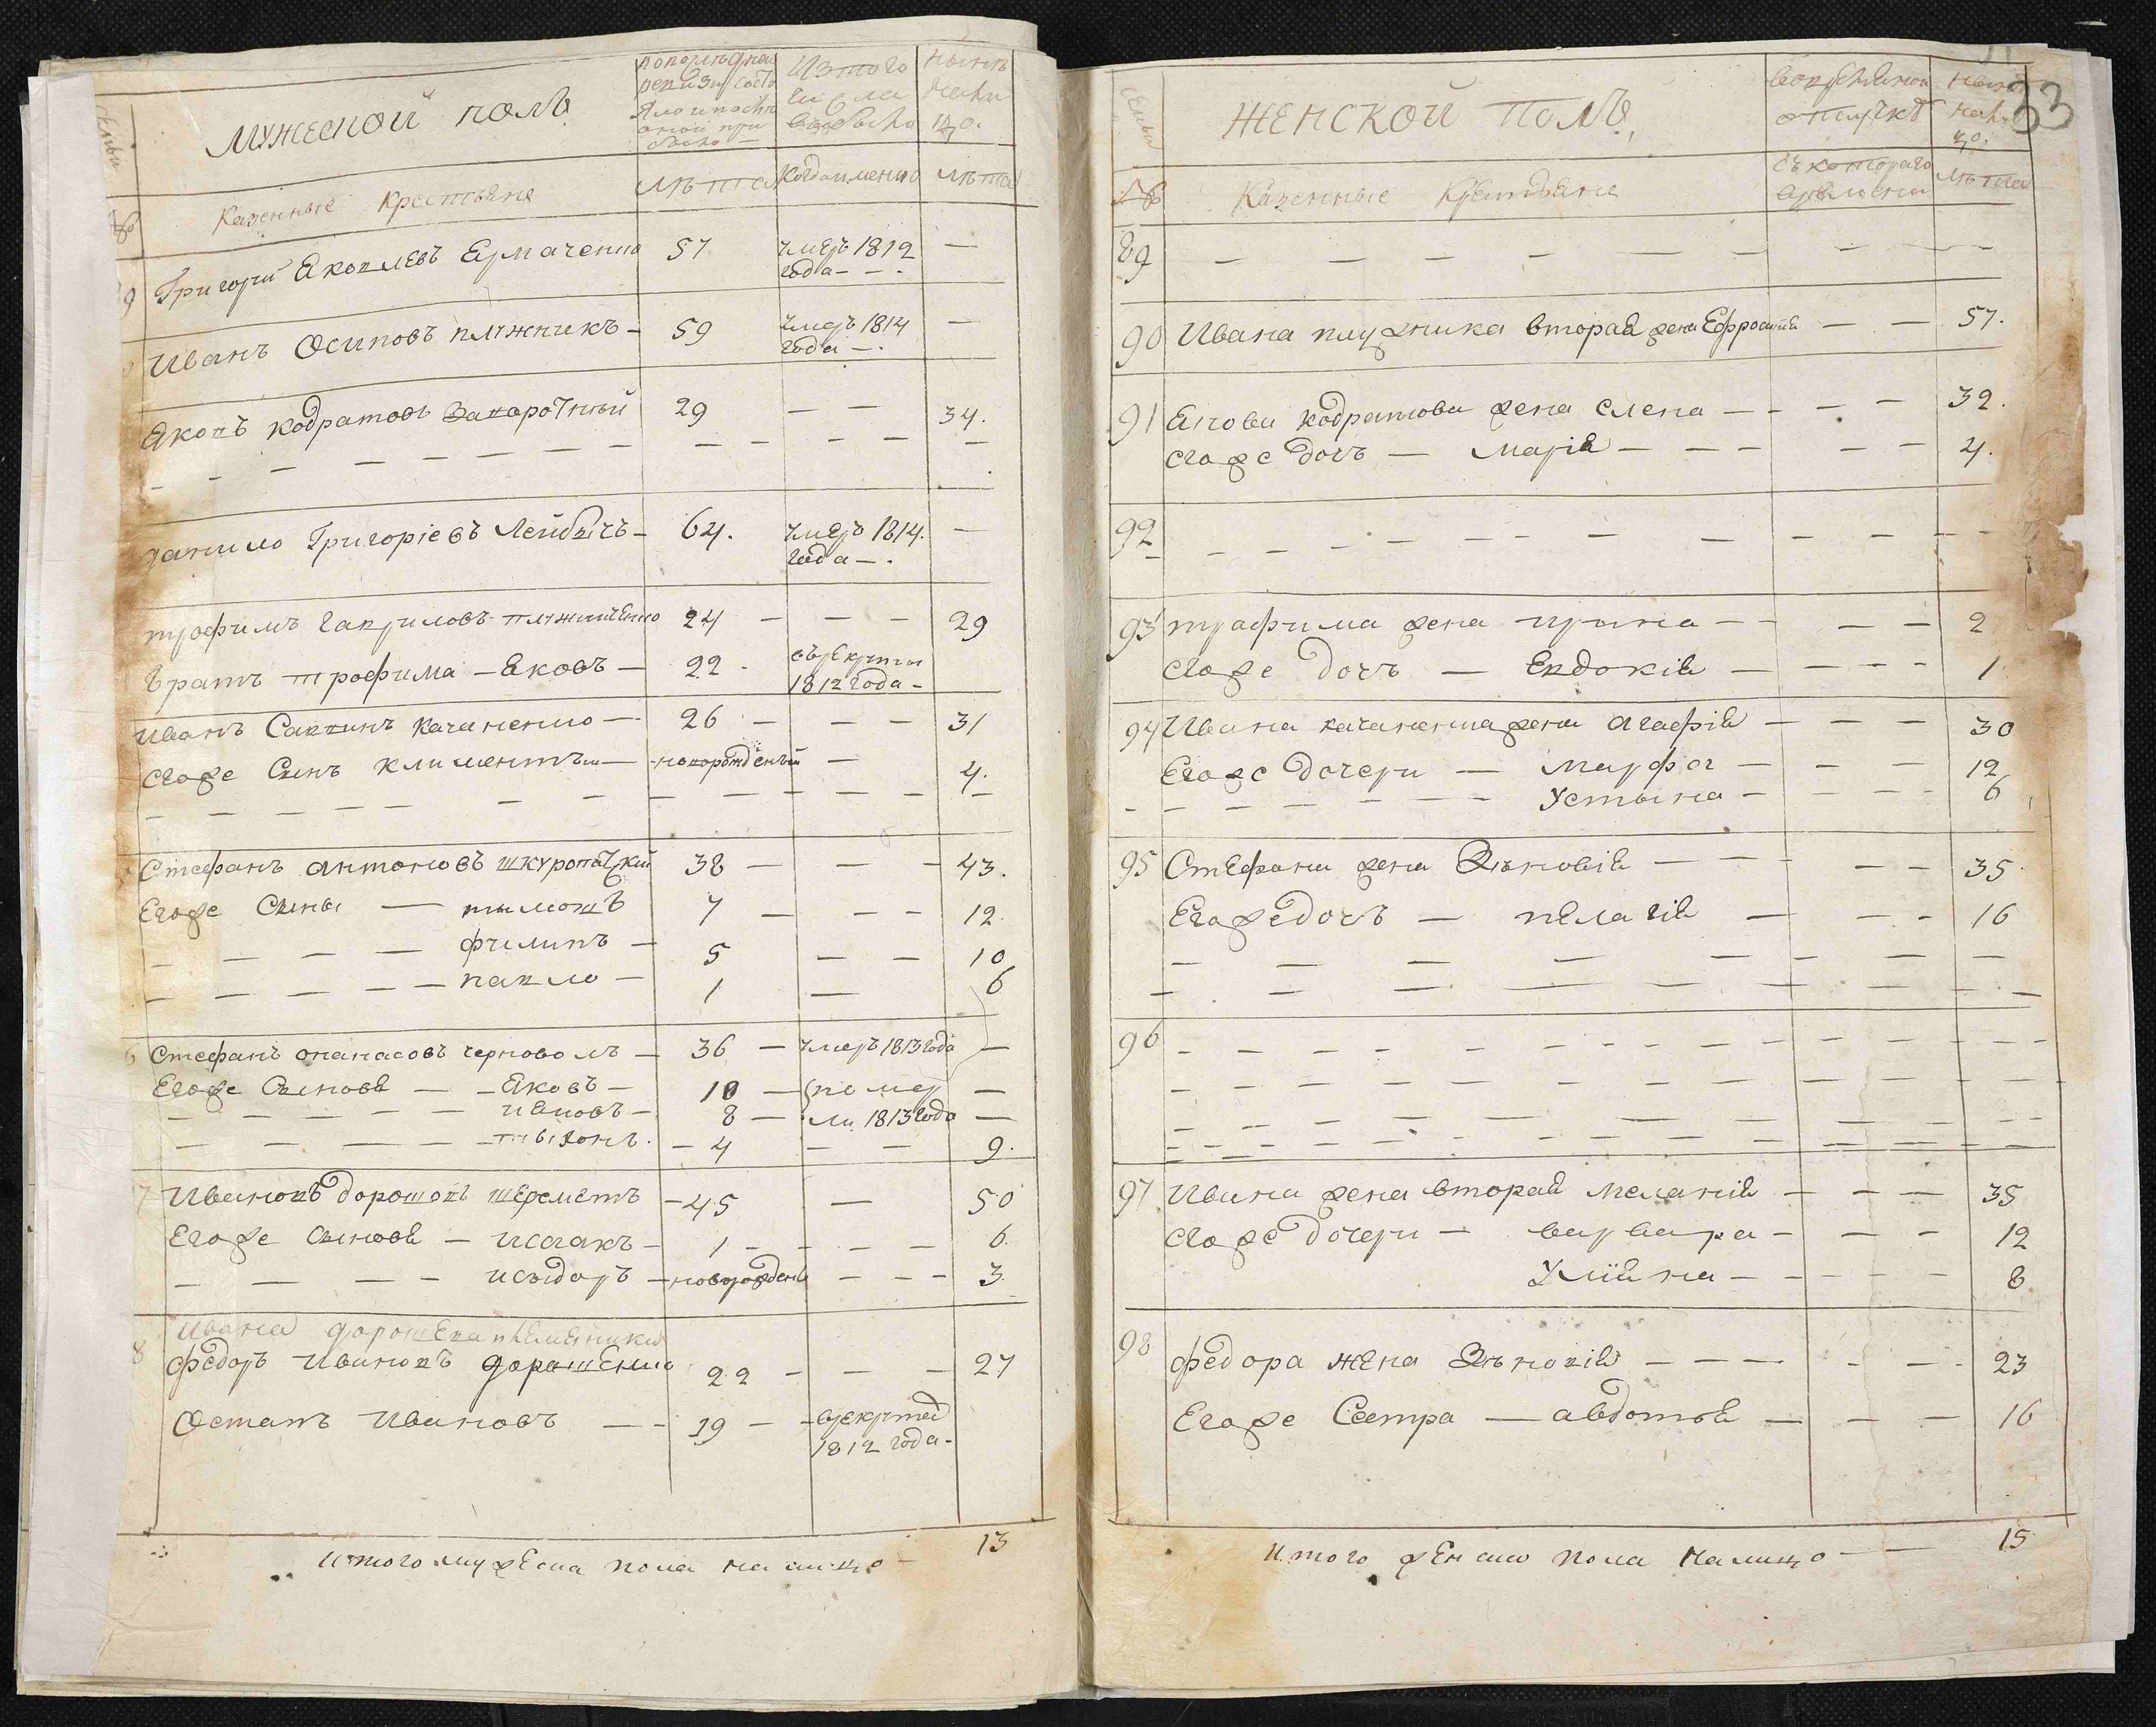 семьи
МУЖЕСКОЙ ПОЛЪ
по последней
ревизии состо
яло и после
оной при
было
Изтого
числа
выбыло
ныне
нали
цо.
№
Казенные Крестьяне
лѣта
Когда имянно
лѣта
9 Григорий Яковлевъ Ермаченко 57 умеръ 1812 —
года — — .
Иванъ Осиповъ плужникъ — 59 умеръ 1814 —
года — .
Яковъ кодратовъ Запорожный 29 — — 34.
Данило Григоріевъ Лейбичъ — 64. умеръ 1814. —
года — .
трофимъ гавриловъ плужниченко 24 — — — 29
братъ трофима — Яковъ — 22 . въ рекруты
1812 года —
Иванъ Саввинъ Качаненко — 26 — — — 31
Егоже Сынъ климентъ — новорожденый — 4.
Стефанъ антоновъ шкуропацкий 38 — — — 43.
Егоже Сыны — тымошъ 7 — — — 12.
— — — — филипъ — 5 — — 10
— — — — — павло — 1 — 6
6 Стефанъ опанасовъ черноволъ — 36 — умеръ 1813 года —
Егоже Сынове — — Яковъ — 10 — помер —
— — — — — ивановъ — 8 — ли 1813 года —
— — — — тыхонъ . — 4 — — 9.
7 Ивановъ дорошовъ шереметъ — 45 — 50
Егоже Сынове — исаакъ — 1 — — — — 6.
— — — — исыдоръ — новорожденъ — — — 3.
Ивана дорошева племянники
8 федоръ Ивановъ дорошенко 22 — — — 27
Остапъ Ивановъ — — 19 — — в рекруты
1812 года —
Итого мужеска пола на лицо — 13
33
семьи
ЖЕНСКОЙ ПОЛЪ
во временной
отлучке
ныне
нали
цо.
№
Казенные Крестьяне
съ котораго
времени
лѣта
89 — — — — — — — —
90 Ивана плужника вторая жена Ефросиния — — 57.
91 Якова кодратова жена Елена — — — — 32.
Егоже дочъ — Марія — — — — — 4.
92 — — — — — — — — — — — —
93 трафима жена ирина — — — — 2
Егоже дочъ — Евдокія — — — — 1
94 Ивана качаненка жена агафія — — — 30
Егоже дочери — Марфа — — — 12
— — — — — — — Устына — — — — 6
95 Стефана жена Зѣновія — — — — — 35.
Егоже дочъ — пелагія — — — 16
96 — — — — — — — — — — — — —
97 Ивана жена вторая меланія — — — 35
Егоже дочери — варвара — — — 12
Уліяна — — — — — 8
98 федора жена Зѣновія — — — — — 23
Егоже Сестра — авдотья — — — 16
Итого женска пола налицо — — 15